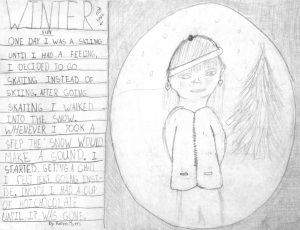 WINTER
ONE DAY I WAS A SKIING
UNTIL I HAD A FEELING,
I DECIDED TO GO
SKATING INSTEAD OF
SKIING. AFTER GOING
SKATING I WALKED
INTO THE SNOW.
WHENEVER I TOOK A
STEP THE SNOW WOULD
MAKE A SOUND. I
STARTED GETTING A CHILL
I FELT ICKY GOING INSI-
DE, INSIDE I HAD A CUP
OF HOT CHOCOLATE
UNTIL IT WAS GONE.
By